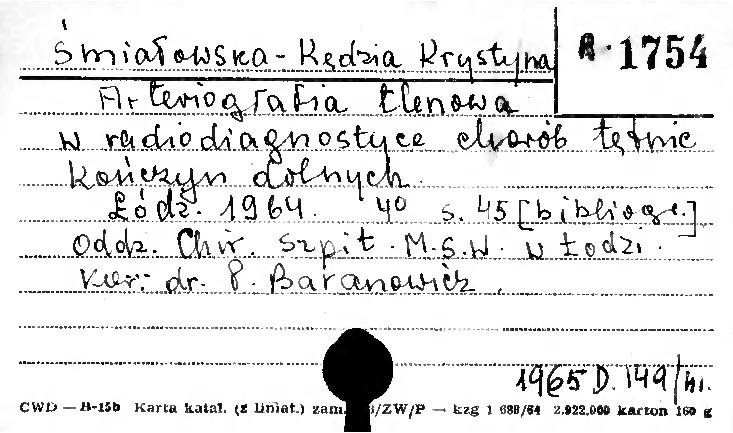 Śmiałowska-Kędzia Krystyna
R.1754
Arteriografia tlenowa
w radiodiagnostyce chorób tętnic
kończyn dolnych.
Łódź. 1964. 4° s. 45 [bibliogr.]
Oddz. Chir. Szpit. M.S.W. w Łodzi.
Kier: dr. P. Baranowicz.
1965 D. 149/
CWD — H-15b Karta katal. (z liniat.) zam. /ZW/P — kzg 1 688/64 2.922.000 karton 160 g